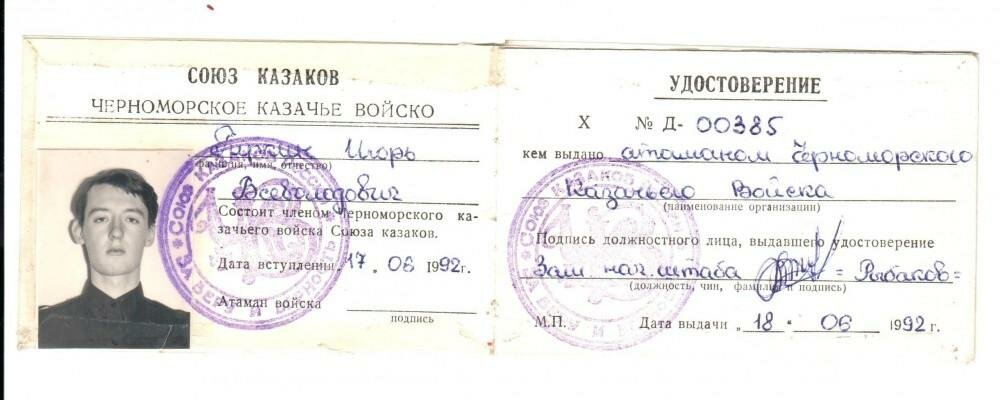 СОЮЗ КАЗАКОВ
ЧЕРНОМОРСКОЕ КАЗАЧЬЕ ВОЙСКО
Игорь
фамилия, имя, отчество)
Всеволодович
Состоит членом Черноморского ка-
зачьего войска Союза казаков.
Дата вступления „17„ 06 1992г.
Атаман войска
подпись
УДОСТОВЕРЕНИЕ
Х № Д- 00385
кем выдано атаманом Черноморского
Казачьего Войска
(наименование организации)
Подпись должностного лица, выдавшего удостоверение
Зам нач. штаба =Рыбаков=
(должность, чин, фамилия и подпись)
М.П. Дата выдачи „18" 06 1992 г.